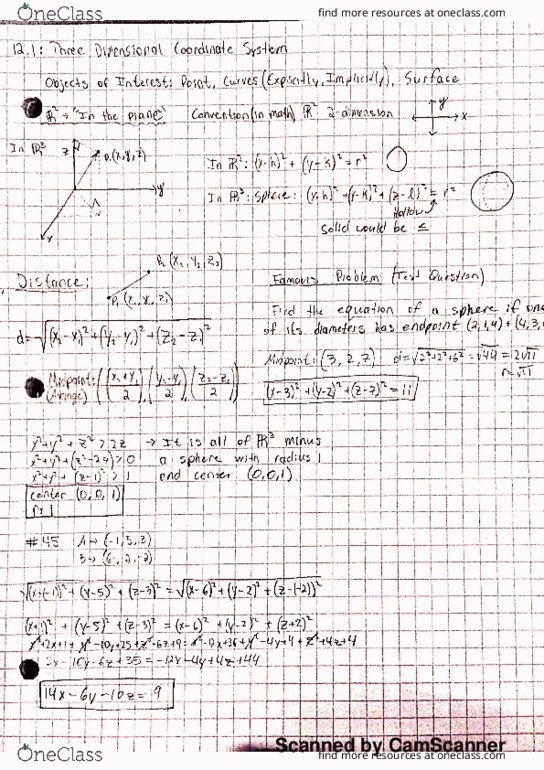 OneClass
find more resources at oneclass.com
12.1: Three Dimensional Coordinate System
Objects of Interest: Point, Curves (Explicitly, Implicitly), Surface
ℝ² → "In the plane" Convention (in math) ℝ² 2-dimension
y
x
In ℝ³
z
P.(x,y,z)
y
x
In ℝ²: (x-h)² + (y-k)² = r²
In ℝ³: Sphere: (x-h)² + (y-k)² + (z-l)² = r²
Hollow
Solid would be ≤
P₂ (x₂, y₂, z₂)
P₁ (x₁, y₁, z₁)
Distance:
d = √(x₂-x₁)² + (y₂-y₁)² + (z₂-z₁)²
Midpoint:
(Average)
Famous Problem (Text Question)
Find the equation of a sphere if one
of its diameters has endpoint (2,1,4) + (4,3,
Midpoint: (3, 2, 7) d = √2²+2²+6² = √44 = 2√11
r = √11
(x-3)² + (y-2)² + (z-7)² = 11
x² + y² + z² > 2z → It is all of ℝ³ minus
a sphere with radius 1
x² + y² + (z-1)² > 1 and center (0,0,1)
center (0, 0, 1)
r = 1
#45 A → (-1, 5, 3)
B → (6, 2, -2)
√(x-(-1))² + (y-5)² + (z-3)² = √(x-6)² + (y-2)² + (z-(-2))²
(x+1)² + (y-5)² + (z-3)² = (x-6)² + (y-2)² + (z+2)²
x²+2x+1 + y²-10y+25 + z²-6z+9 = x²-12x+36 + y²-4y+4 + z²+4z+4
2x-10y-6z+35 = -12x-4y+4z+44
14x-6y-10z = 9
Scanned by CamScanner
OneClass
find more resources at oneclass.com